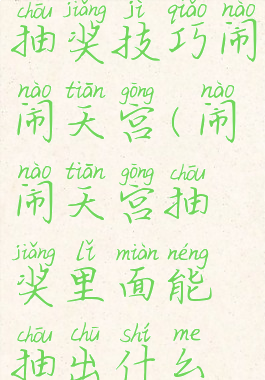 chōu jiǎng jì qiǎo nào
抽奖技巧闹
nào tiān gōng nào
闹天宫(闹
nào tiān gōng chōu
闹天宫抽
jiǎng lǐ miàn néng
奖里面能
chōu chū shí me
抽出什么